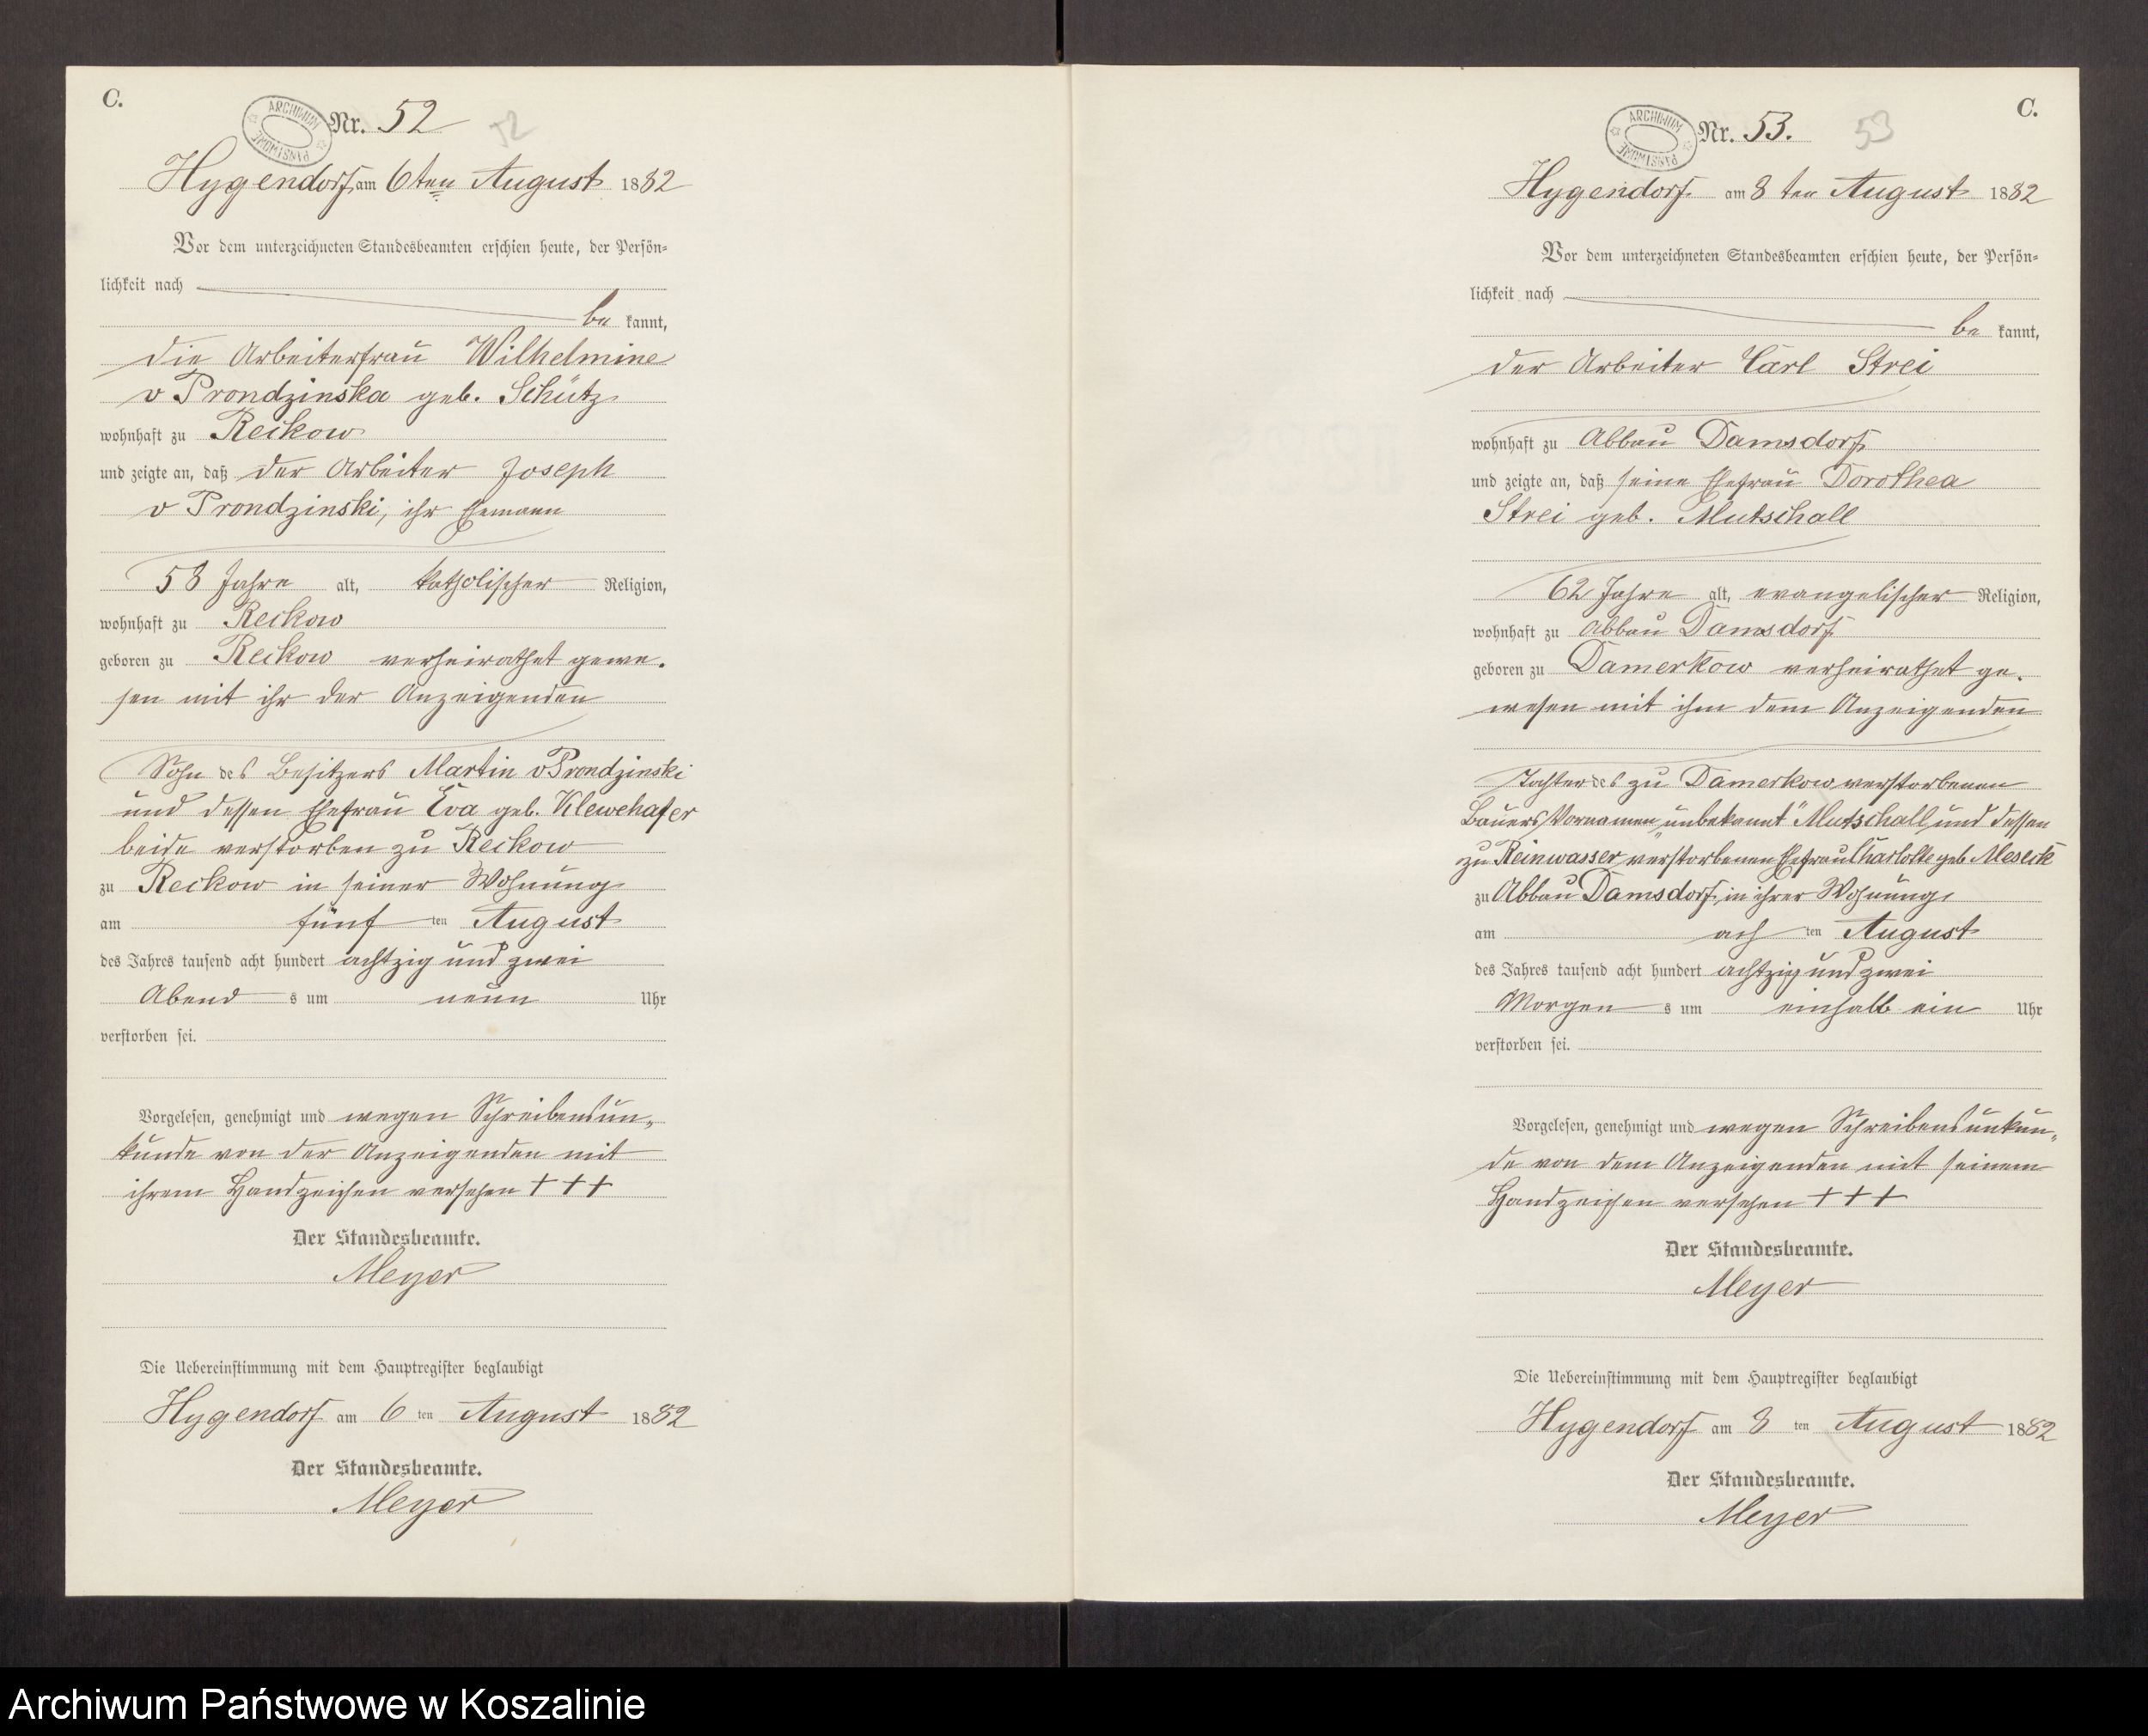 C.
ARCHIWUM PAŃSTWOWE
Nr. 52
52
Hygendorf am 6ten August 1882
Vor dem unterzeichneten Standesbeamten erschien heute, der Persön-
lichkeit nach
be kannt,
die Arbeiterfrau Wilhelmine
v Prondzinska geb. Schütz
wohnhaft zu Reckow
und zeigte an, daß der Arbeiter Joseph
v Prondzinski, ihr Ehemann
58 Jahre alt, katholischer Religion,
wohnhaft zu Reckow
geboren zu Reckow verheirathet gewe-
sen mit ihr der Anzeigenden
Sohn des Besitzers Martin v Prondzinski
und dessen Ehefrau Eva geb. Klewehafer
beide verstorben zu Reckow
zu Reckow in seiner Wohnung
am fünf ten August
des Jahres tausend acht hundert achtzig und zwei
Abend s um neun Uhr
verstorben sei.
Vorgelesen, genehmigt und wegen Schreibensun-
kunde von der Anzeigenden mit
ihrem Handzeichen versehen +++
Der Standesbeamte.
Meyer
Die Uebereinstimmung mit dem Hauptregister beglaubigt
Hygendorf am 6 ten August 1882
Der Standesbeamte.
Meyer
C.
ARCHIWUM PAŃSTWOWE
Nr. 53.
53
Hygendorf am 8 ten August 1882
Vor dem unterzeichneten Standesbeamten erschien heute, der Persön-
lichkeit nach
be kannt,
der Arbeiter Carl Strei
wohnhaft zu Abbau Damsdorf
und zeigte an, daß seine Ehefrau Dorothea
Strei geb. Mutschall
62 Jahre alt, evangelischer Religion,
wohnhaft zu Abbau Damsdorf
geboren zu Damerkow verheirathet ge-
wesen mit ihm dem Anzeigenden
Tochter des zu Damerkow verstorbenen
Bauers Vornamen "unbekannt" Mutschall und dessen
zu Reinwasser verstorbenen Ehefrau Charlotte geb. Meseck
zu Abbau Damsdorf, in ihrer Wohnung
am ach ten August
des Jahres tausend acht hundert achtzig und zwei
Morgen s um einhalb ein Uhr
verstorben sei.
Vorgelesen, genehmigt und wegen Schreibensunkun-
de von dem Anzeigenden mit seinem
Handzeichen versehen +++
Der Standesbeamte.
Meyer
Die Uebereinstimmung mit dem Hauptregister beglaubigt
Hygendorf am 8 ten August 1882
Der Standesbeamte.
Meyer
Archiwum Państwowe w Koszalinie